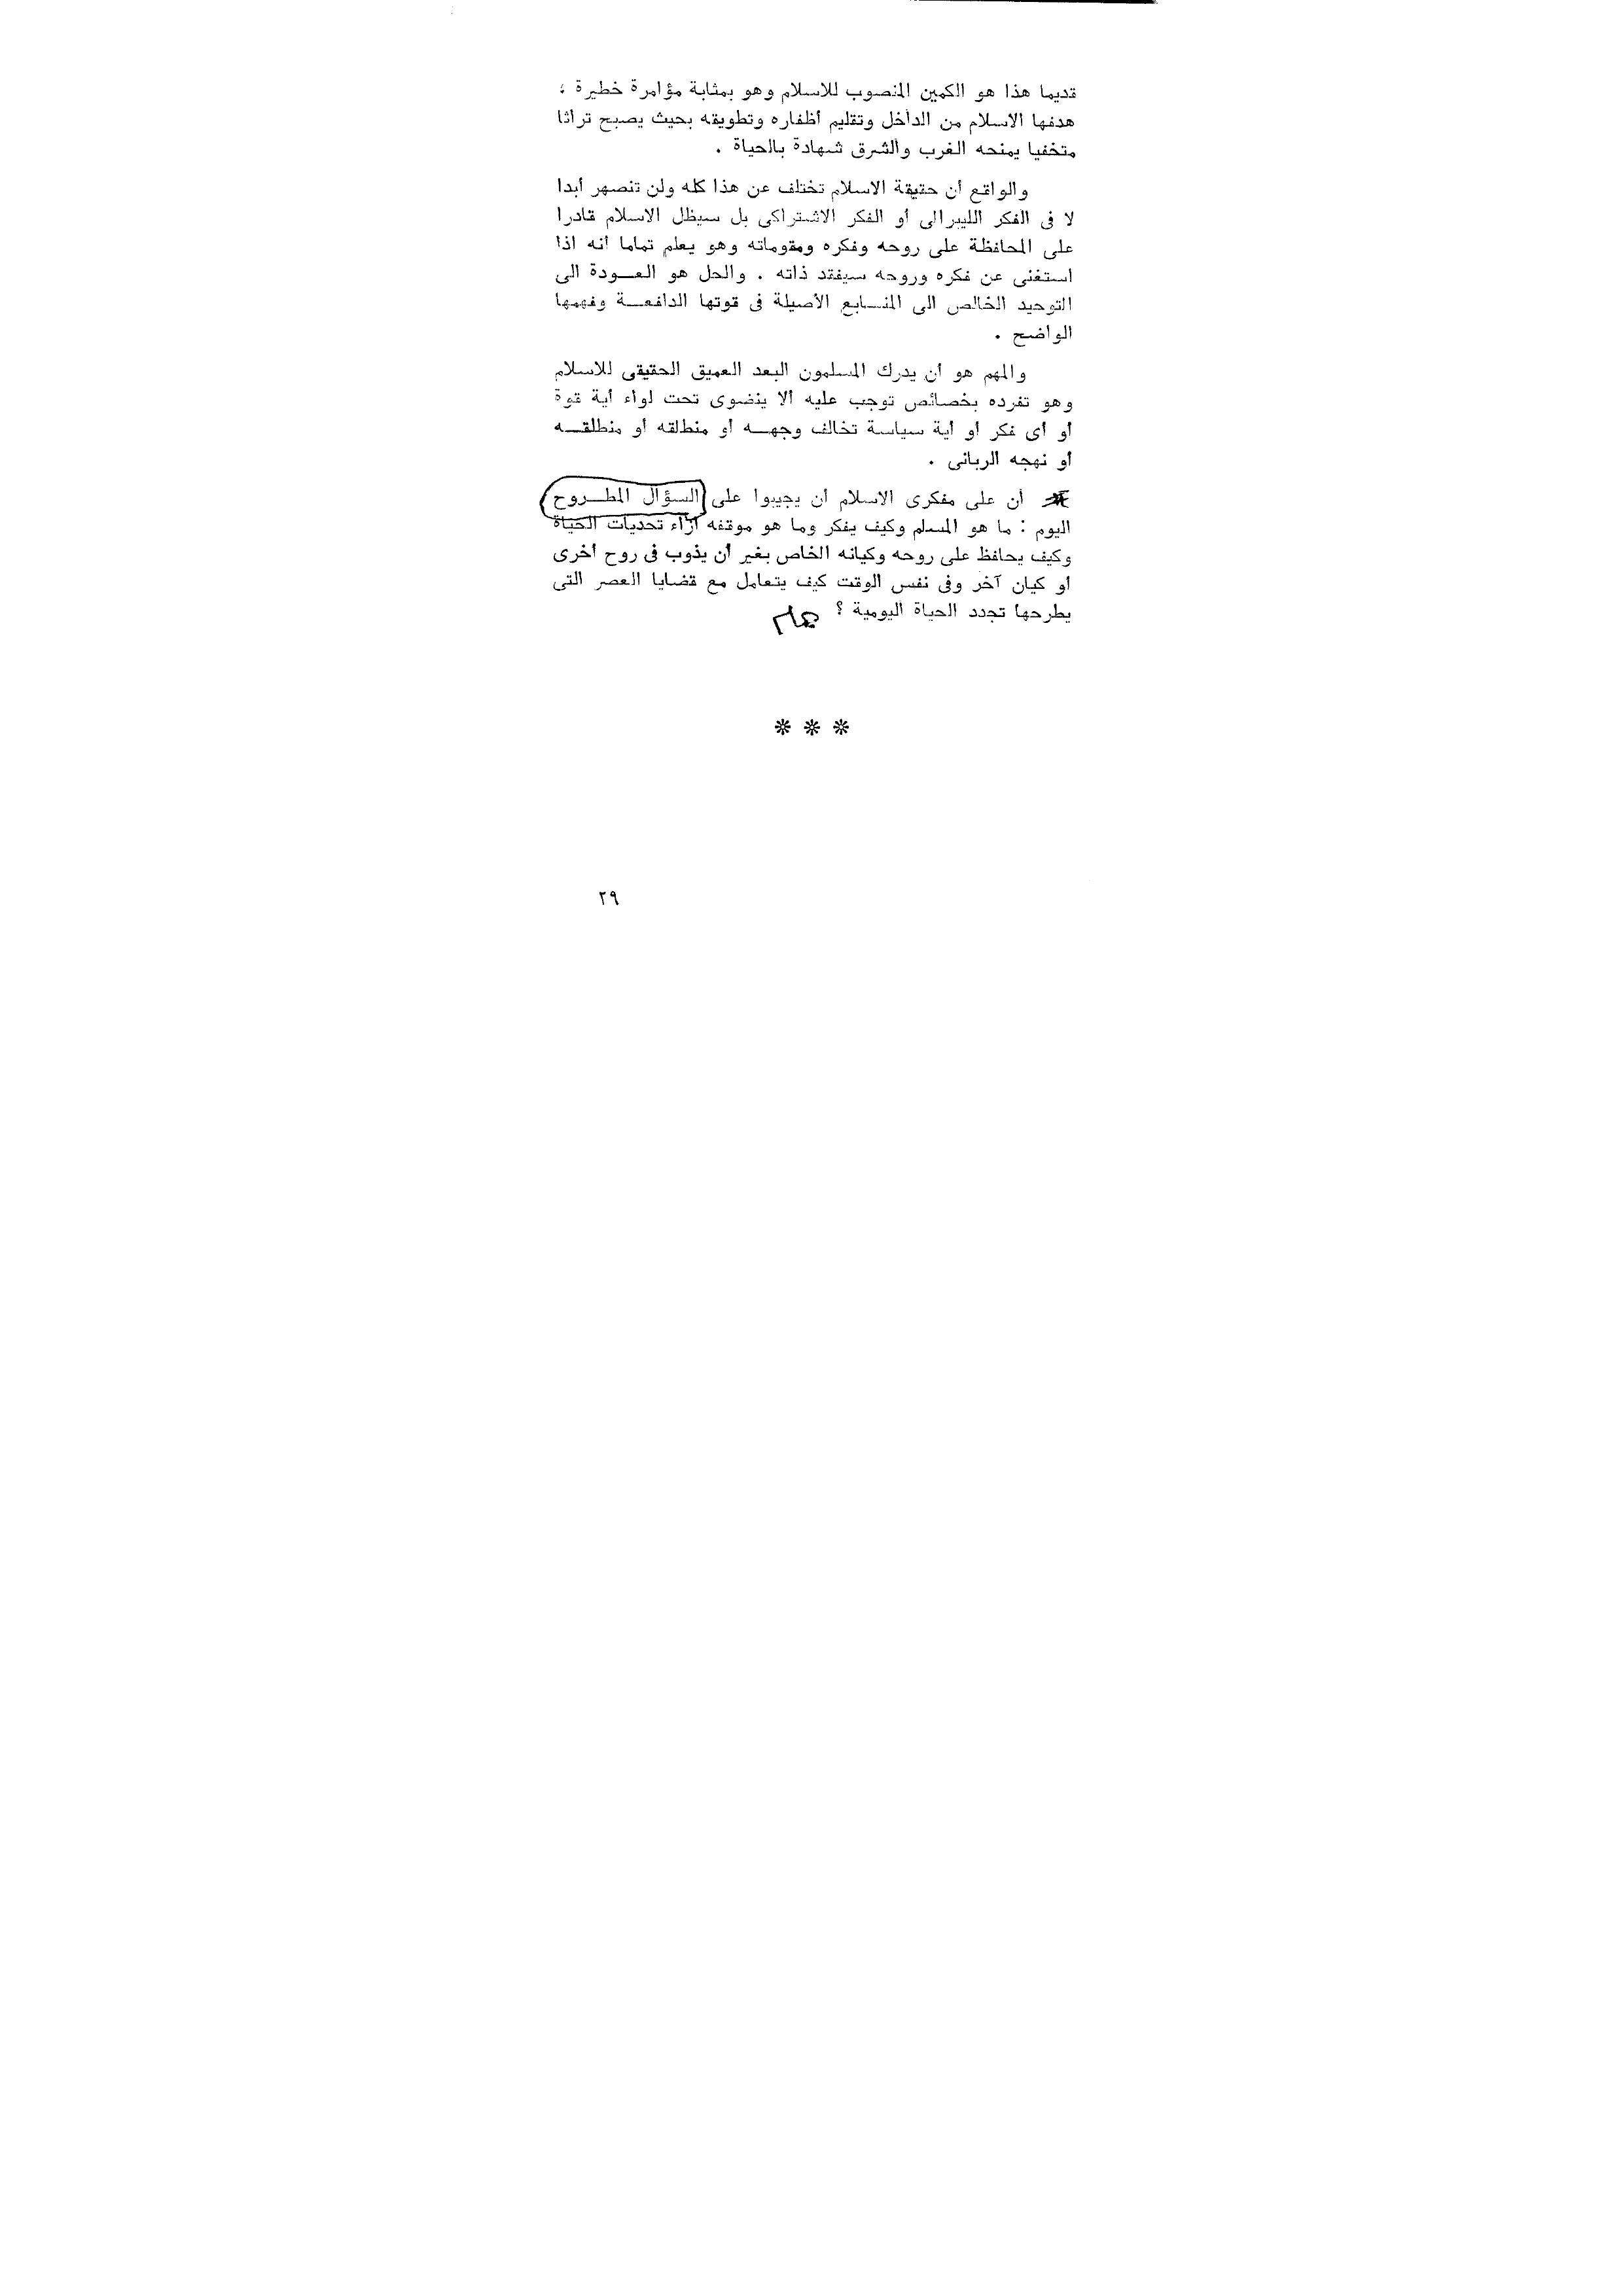 قديما هذا هو الكمين المنصوب للاسلام وهو بمثابة مؤامرة خطيرة ؛
هدفها الاسلام من الداخل وتقليم أظفاره وتطويقه بحيث يصبح تراثا
متخفيا يمنحه الغرب والشرق شهادة بالحياة .
والواقع أن حقيقة الاسلام تختلف عن هذا كله ولن تنصهر أبدا
لا فى الفكر الليبرالى أو الفكر الاشتراكى بل سيظل الاسلام قادرا
على المحافظة على روحه وفكره ومقوماته وهو يعلم تماما انه اذا
استغنى عن فكره وروحه سيفتد ذاته . والحل هو العـودة الى
التوحيد الخالص الى المنـابع الأصيلة فى قوتها الدافعـة وفهمها
الواضح .
والمهم هو أن يدرك المسلمون البعد العميق الحقيقى للاسلام
وهو تفرده بخصائص توجب عليه ألا ينضوى تحت لواء أية قوة
أو أى فكر أو أية سياسة تخالف وجهـه أو منطلقه أو منطلقـه
أو نهجه الربانى .
أن على مفكرى الاسلام أن يجيبوا على السؤال المطـروح
اليوم : ما هو المسلم وكيف يفكر وما هو موقفه ازاء تحديات الحياة
وكيف يحافظ على روحه وكيانه الخاص بغير أن يذوب فى روح أخرى
أو كيان آخر وفى نفس الوقت كيف يتعامل مع قضايا العصر التى
يطرحها تجدد الحياة اليومية ؟ هام
٢٩